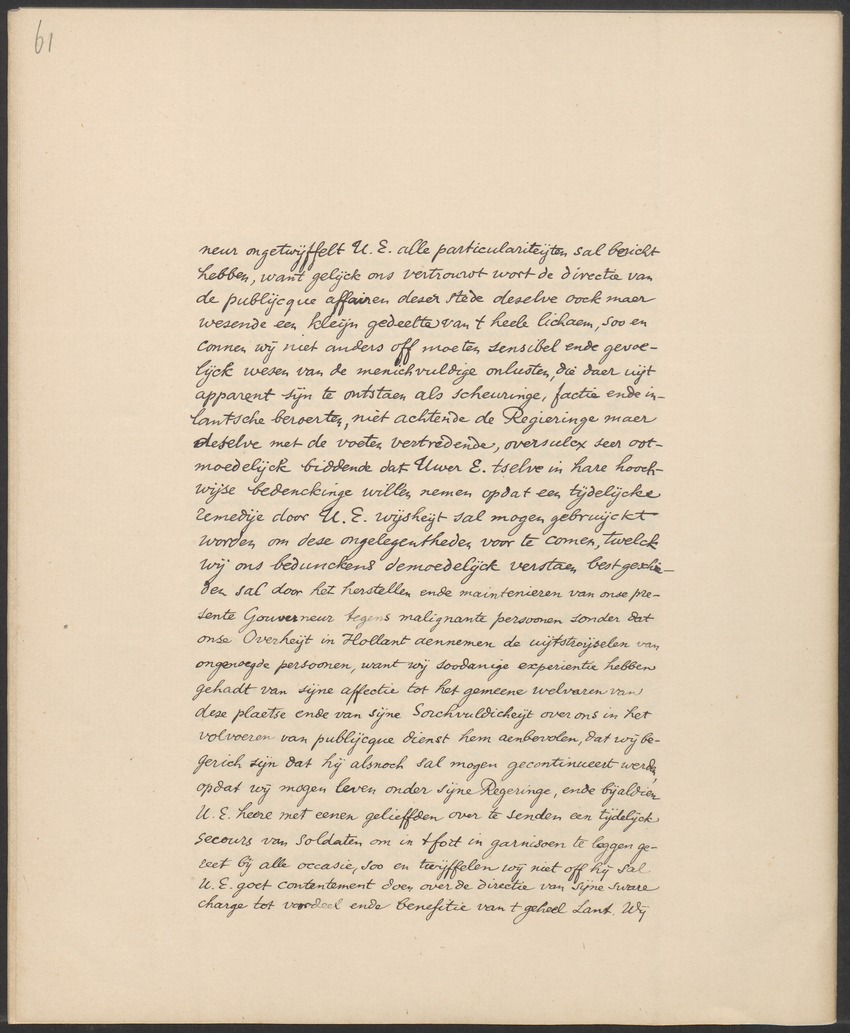 61
neur ongetwijffelt U. E. alle particulariteijten sal bericht
hebben, want gelijck ons vertrouwt wort de directie van
de publijcque affairen deser stede deselve oock maer
wesende een kleijn gedeelte van t heele lichaem, soo en
connen wij niet anders off moeten sensibel ende gevoe-
lijck wesen van de menichvuldige onlusten, die daer uijt
apparent sijn te ontstaen als scheuringe, factie ende in-
lantsche beroerten, niet achtende de Regieringe maer
deselve met de voeten vertredende, oversulcx seer oot-
moedelijck biddende dat Uwer E. tselve in hare hooch-
wijse bedenckinge willen nemen opdat een tijdelijcke
remedije door U. E. wijsheijt sal mogen gebruijckt
worden om dese ongelegentheden voor te comen, twelck
wij ons bedunckens demoedelijck verstaen best geschie-
den sal door het herstellen ende maintenieren van onse pre-
sente Gouverneur tegens malignante persoonen sonder dat
onse Overheijt in Hollant aennemen de uijtstroijselen van
ongenoegde persoonen, want wij soodanige experientie hebben
gehadt van sijne affectie tot het gemeene welvaren van
dese plaetse ende van sijne Sorchvuldicheijt over ons in het
volvoeren van publijcque dienst hem aenbevolen, dat wij be-
gerich sijn dat hij alsnoch sal mogen gecontinueert werden,
opdat wij mogen leven onder sijne Regeringe, ende bijaldien
U. E. heere met eenen gelieffden over te senden een tijdelijck
secours van soldaten om in t fort in garnisoen te leggen ge-
reet bij alle occasie, soo en twijffelen wij niet off hij sal
U. E. goet contentement doen over de directie van sijne sware
charge tot voordeel ende benefitie van t geheel Lant. Wij